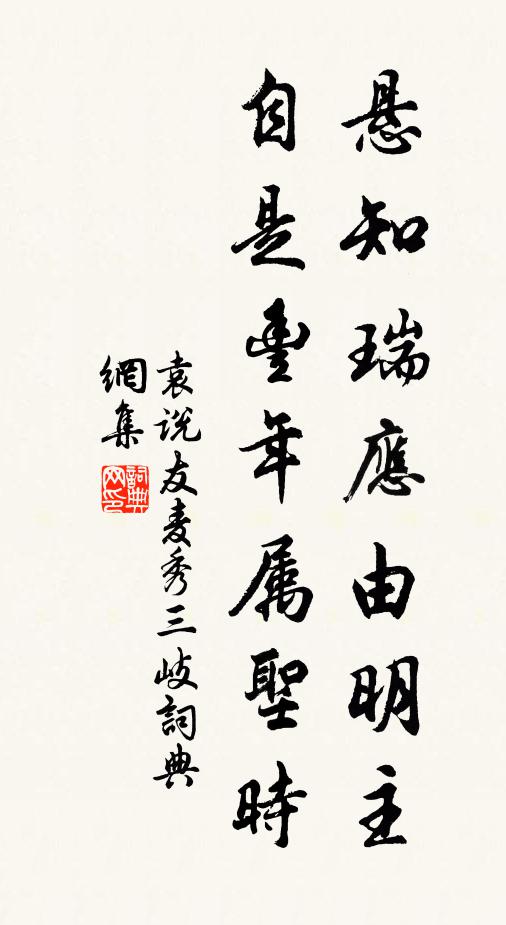 悬知瑞應由明主
自是豐年属聖時
袁说友麦秀三岐詞典
網集
詞典网印